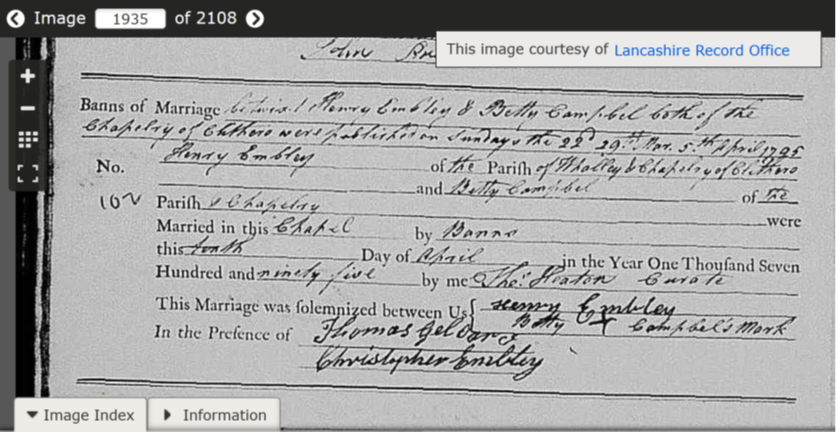 Image 1935 of 2108
This image courtesy of Lancashire Record Office
John
Banns of Marriage between Henry Embley & Betty Campbel both of the
Chapelry of Clithero were published on Sundays the 22d 29th Mar. 5th April 1795
No. Henry Embley of the Pariſh of Whalley & Chapelry of Clithero
and Betty Campbel of the
102 Pariſh & Chapelry were
Married in this Chapel by Banns
this tenth Day of April in the Year One Thouſand Seven
Hundred and ninety five by me Thos. Heaton Curate
This Marriage was ſolemnized between Us { Henry Embley
Betty X Campbel's Mark
In the Preſence of Thomas Geldard
Christopher Embley
Image Index
Information